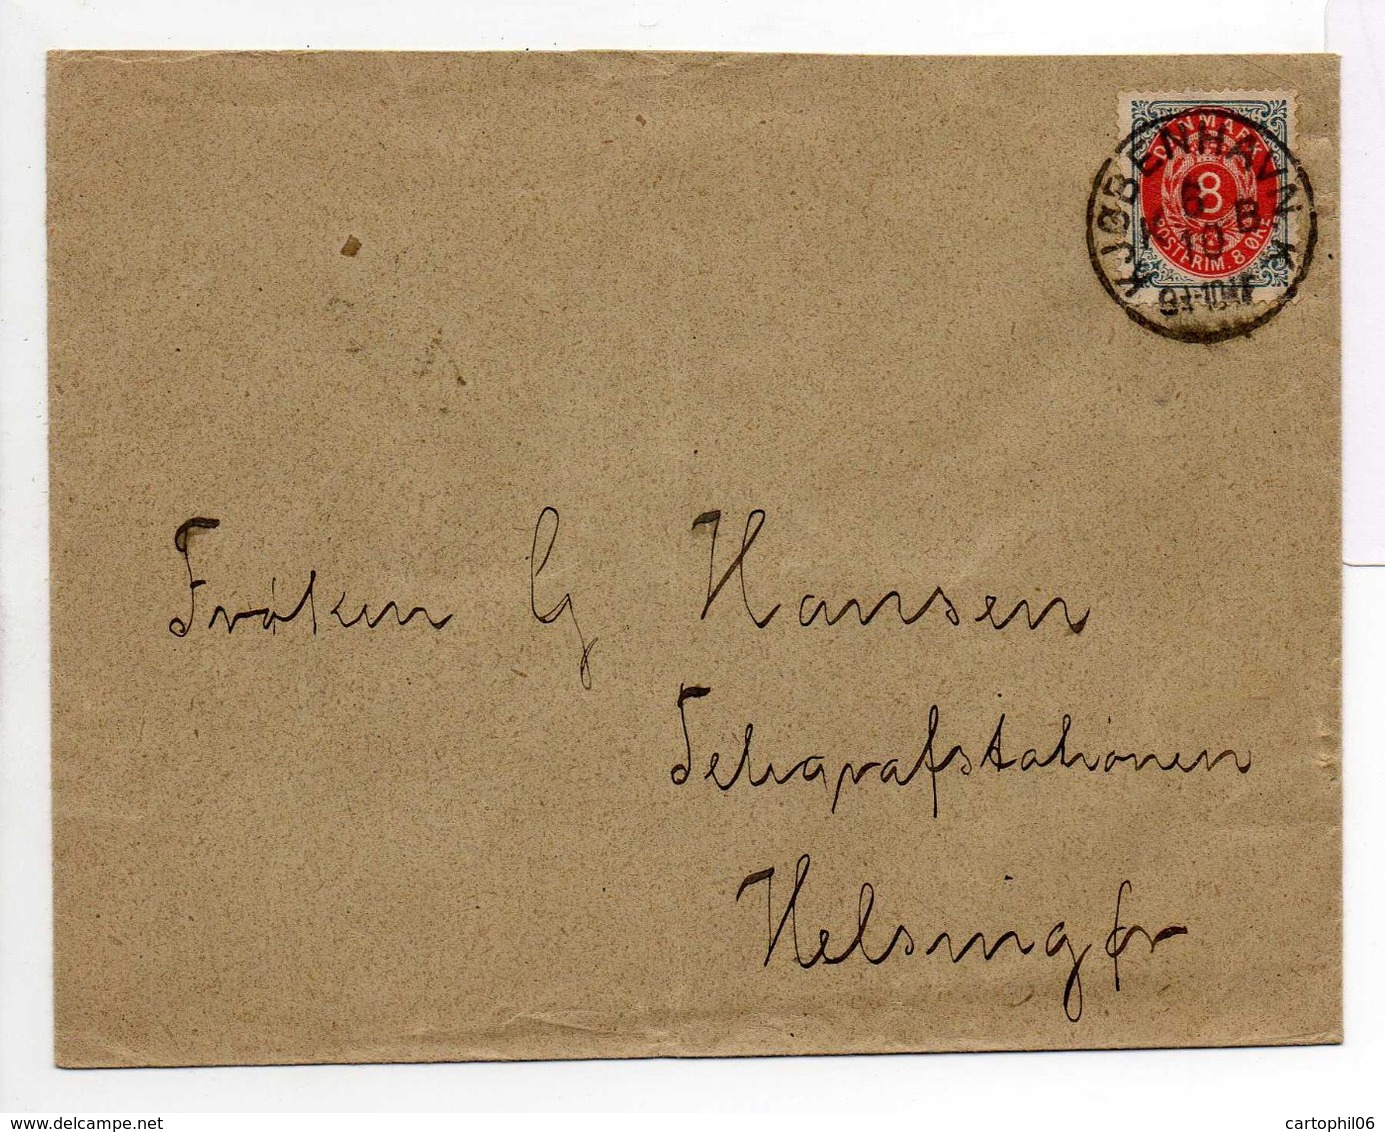 DANMARK
8
POSTFRIM. 8 ØRE
KJØBENHAVN K.
6
K B
10
Frøken G Hansen
Telegrafstationen
Helsingør
www.delcampe.net
cartophil06